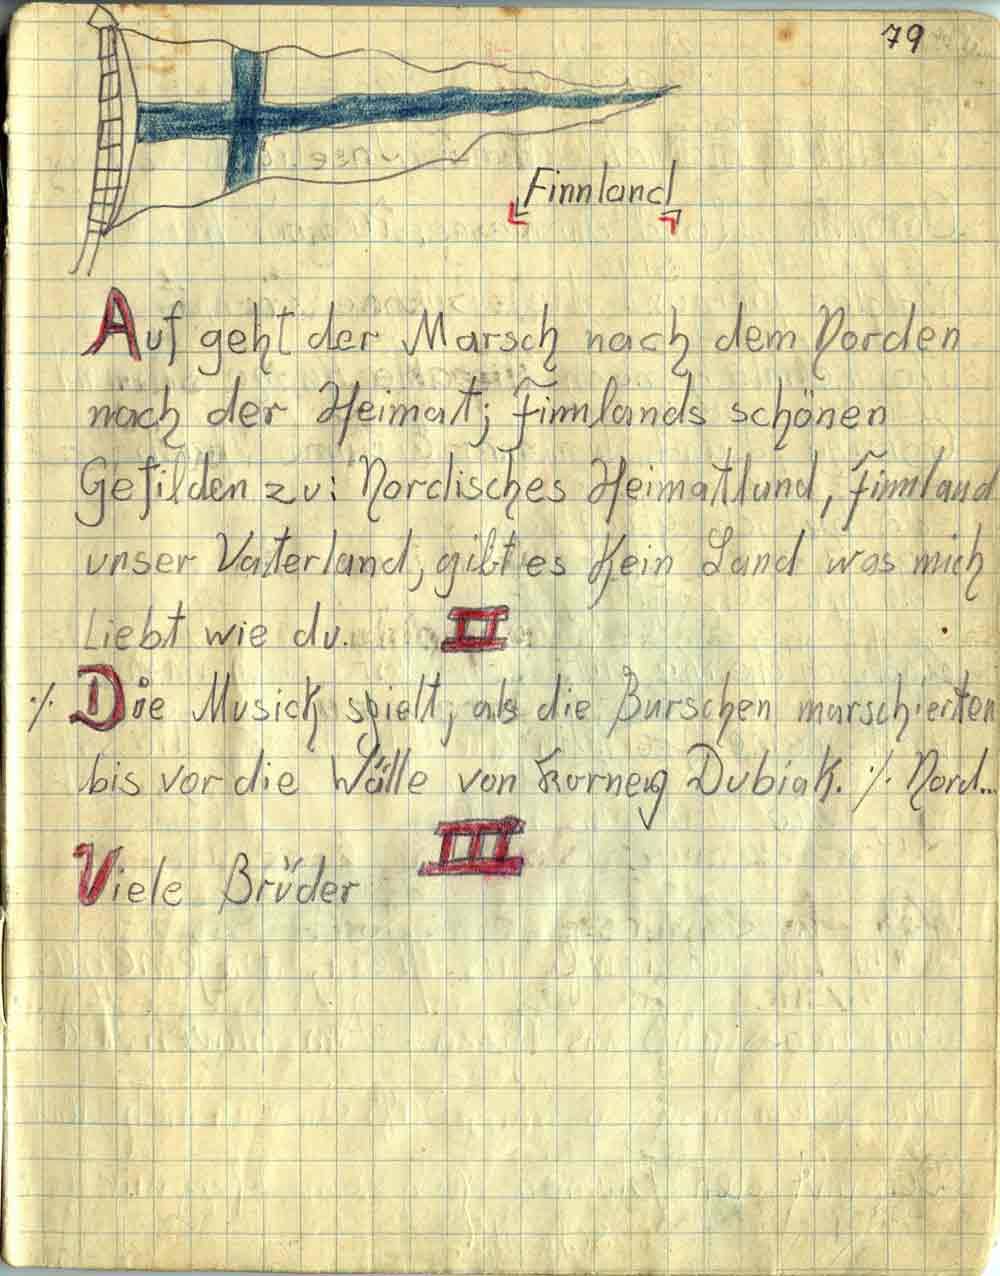 79
Finnland
Auf geht der Marsch nach dem Norden
nach der Heimat; Finnlands schönen
Gefilden zu: Nordisches Heimatland, Finnland
unser Vaterland, gibt es kein Land was mich
Liebt wie du. II
·/. Die Musick spielt, als die Burschen marschierten
bis vor die Wälle von Dubiak. ·/. Nord...
III
Viele Brüder